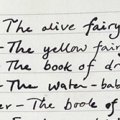 The olive fairy
- The yellow fair
- The book of dr
- The water-bab
er - The book of